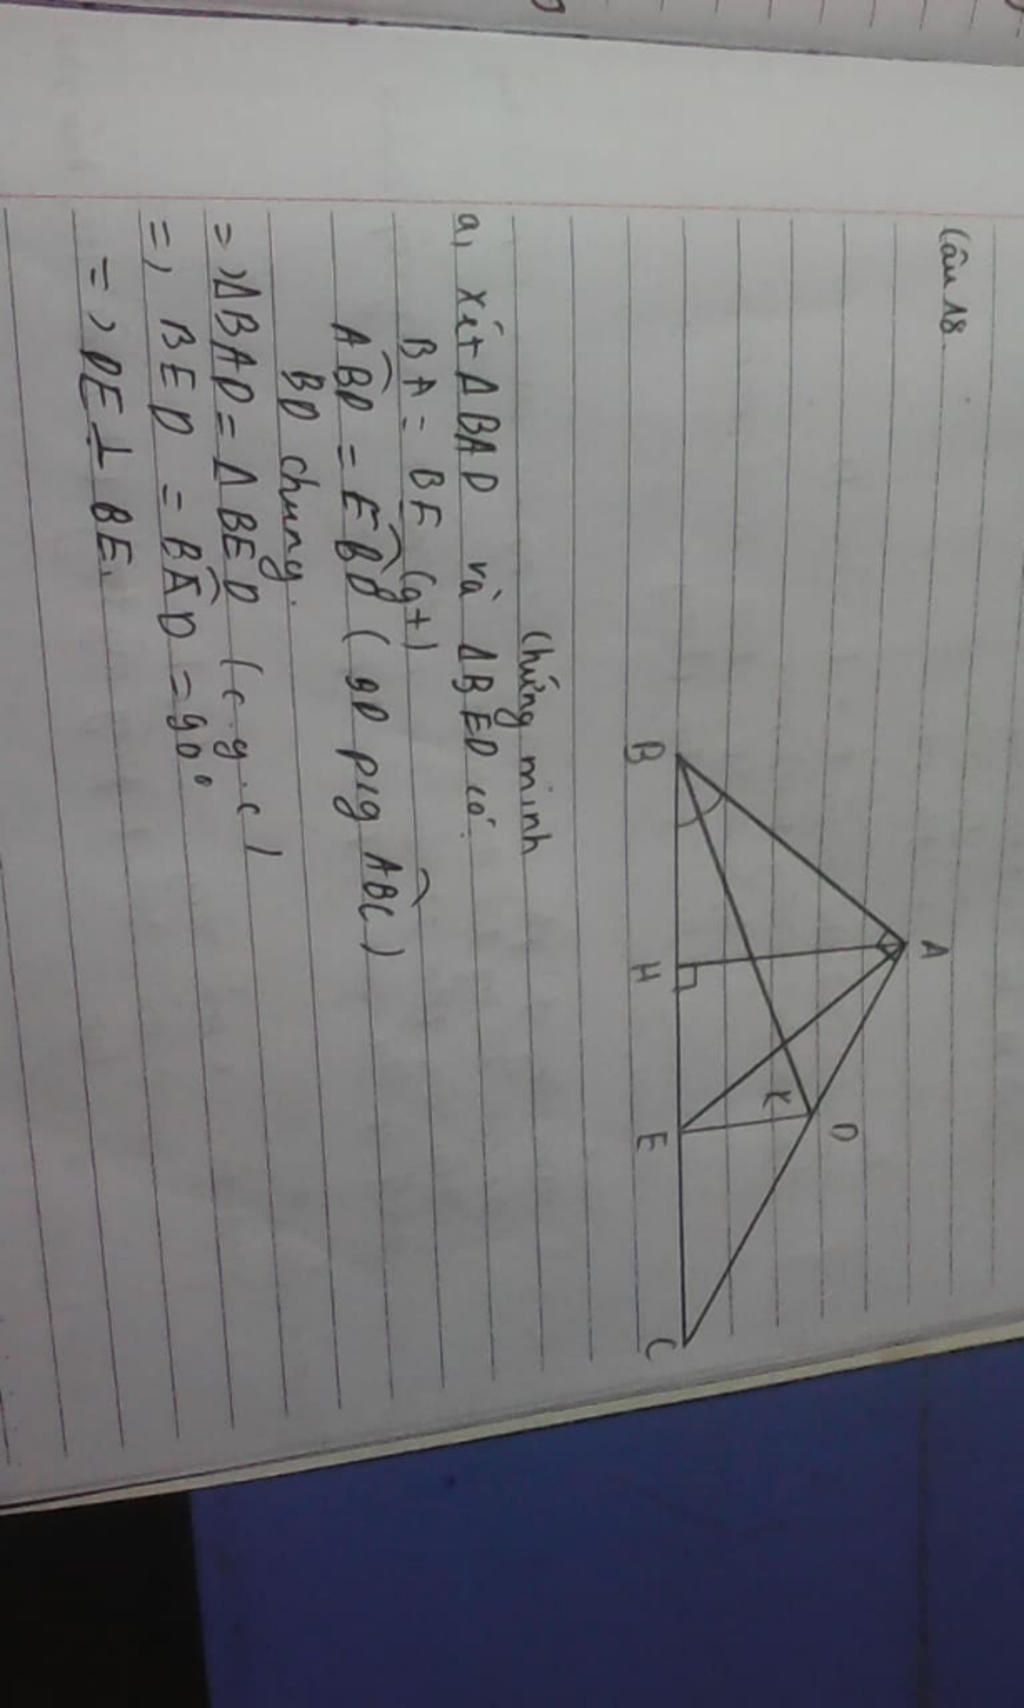 Câu 18.
A
D
K
B
H
E
C
Chứng minh
a, Xét ΔBAD và ΔBED có.
BA = BE (gt)
ABD = EBD (BD p/g ABC)
BD chung.
=> ΔBAD = ΔBED (c.g.c)
=> BED = BAD = 90°
=> DE ⊥ BE.